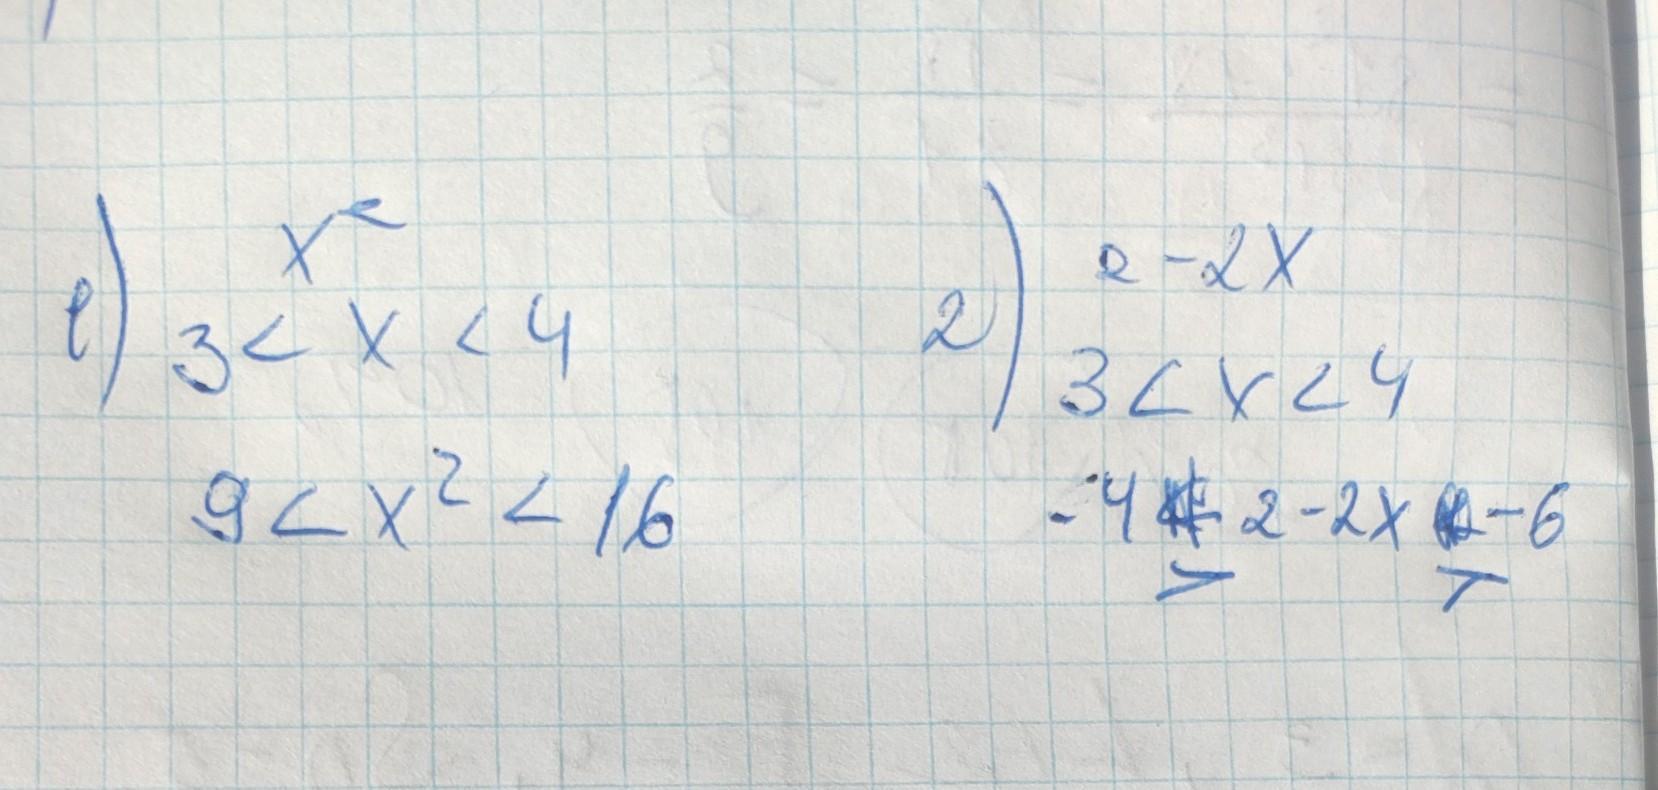 1) x²
3 < x < 4
9 < x² < 16
2) 2 - 2x
3 < x < 4
-4 > 2 - 2x > -6